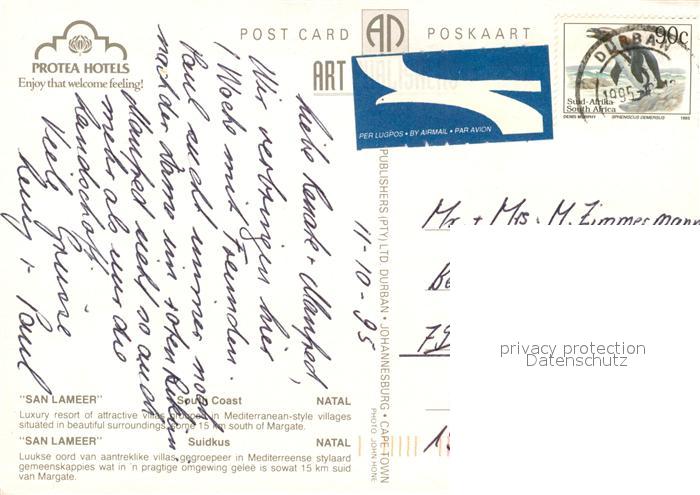 POST CARD
POSKAART
PROTEA HOTELS
Enjoy that welcome feeling!
ART PUBLISHERS
PER LUGPOS • BY AIRMAIL • PAR AVION
90c
DURBAN
1995
Suid-Afrika
South Africa
DENIS MURPHY SPHENISCUS DEMERSUS 1993
11-10-95
Liebe Renate + Manfred,
Wir verbringen hier
1 Woche mit Freunden.
Paul sucht immer noch
nach der Dame im roten Bikini
Manfred sieht so auch
mehr als nur die
Landschaft
Viele Grüsse
+ Paul
Mr + Mrs. M. Zimmermann
privacy protection
Datenschutz
PUBLISHERS (PTY) LTD DURBAN • JOHANNESBURG • CAPE TOWN
PHOTO: JOHN HONE
"SAN LAMEER" South Coast NATAL
Luxury resort of attractive villas grouped in Mediterranean-style villages
situated in beautiful surroundings some 15 km south of Margate.
"SAN LAMEER" Suidkus NATAL
Luukse oord van aantreklike villas gegroepeer in Mediterreense stylaard
gemeenskappies wat in 'n pragtige omgewing geleë is sowat 15 km suid
van Margate.